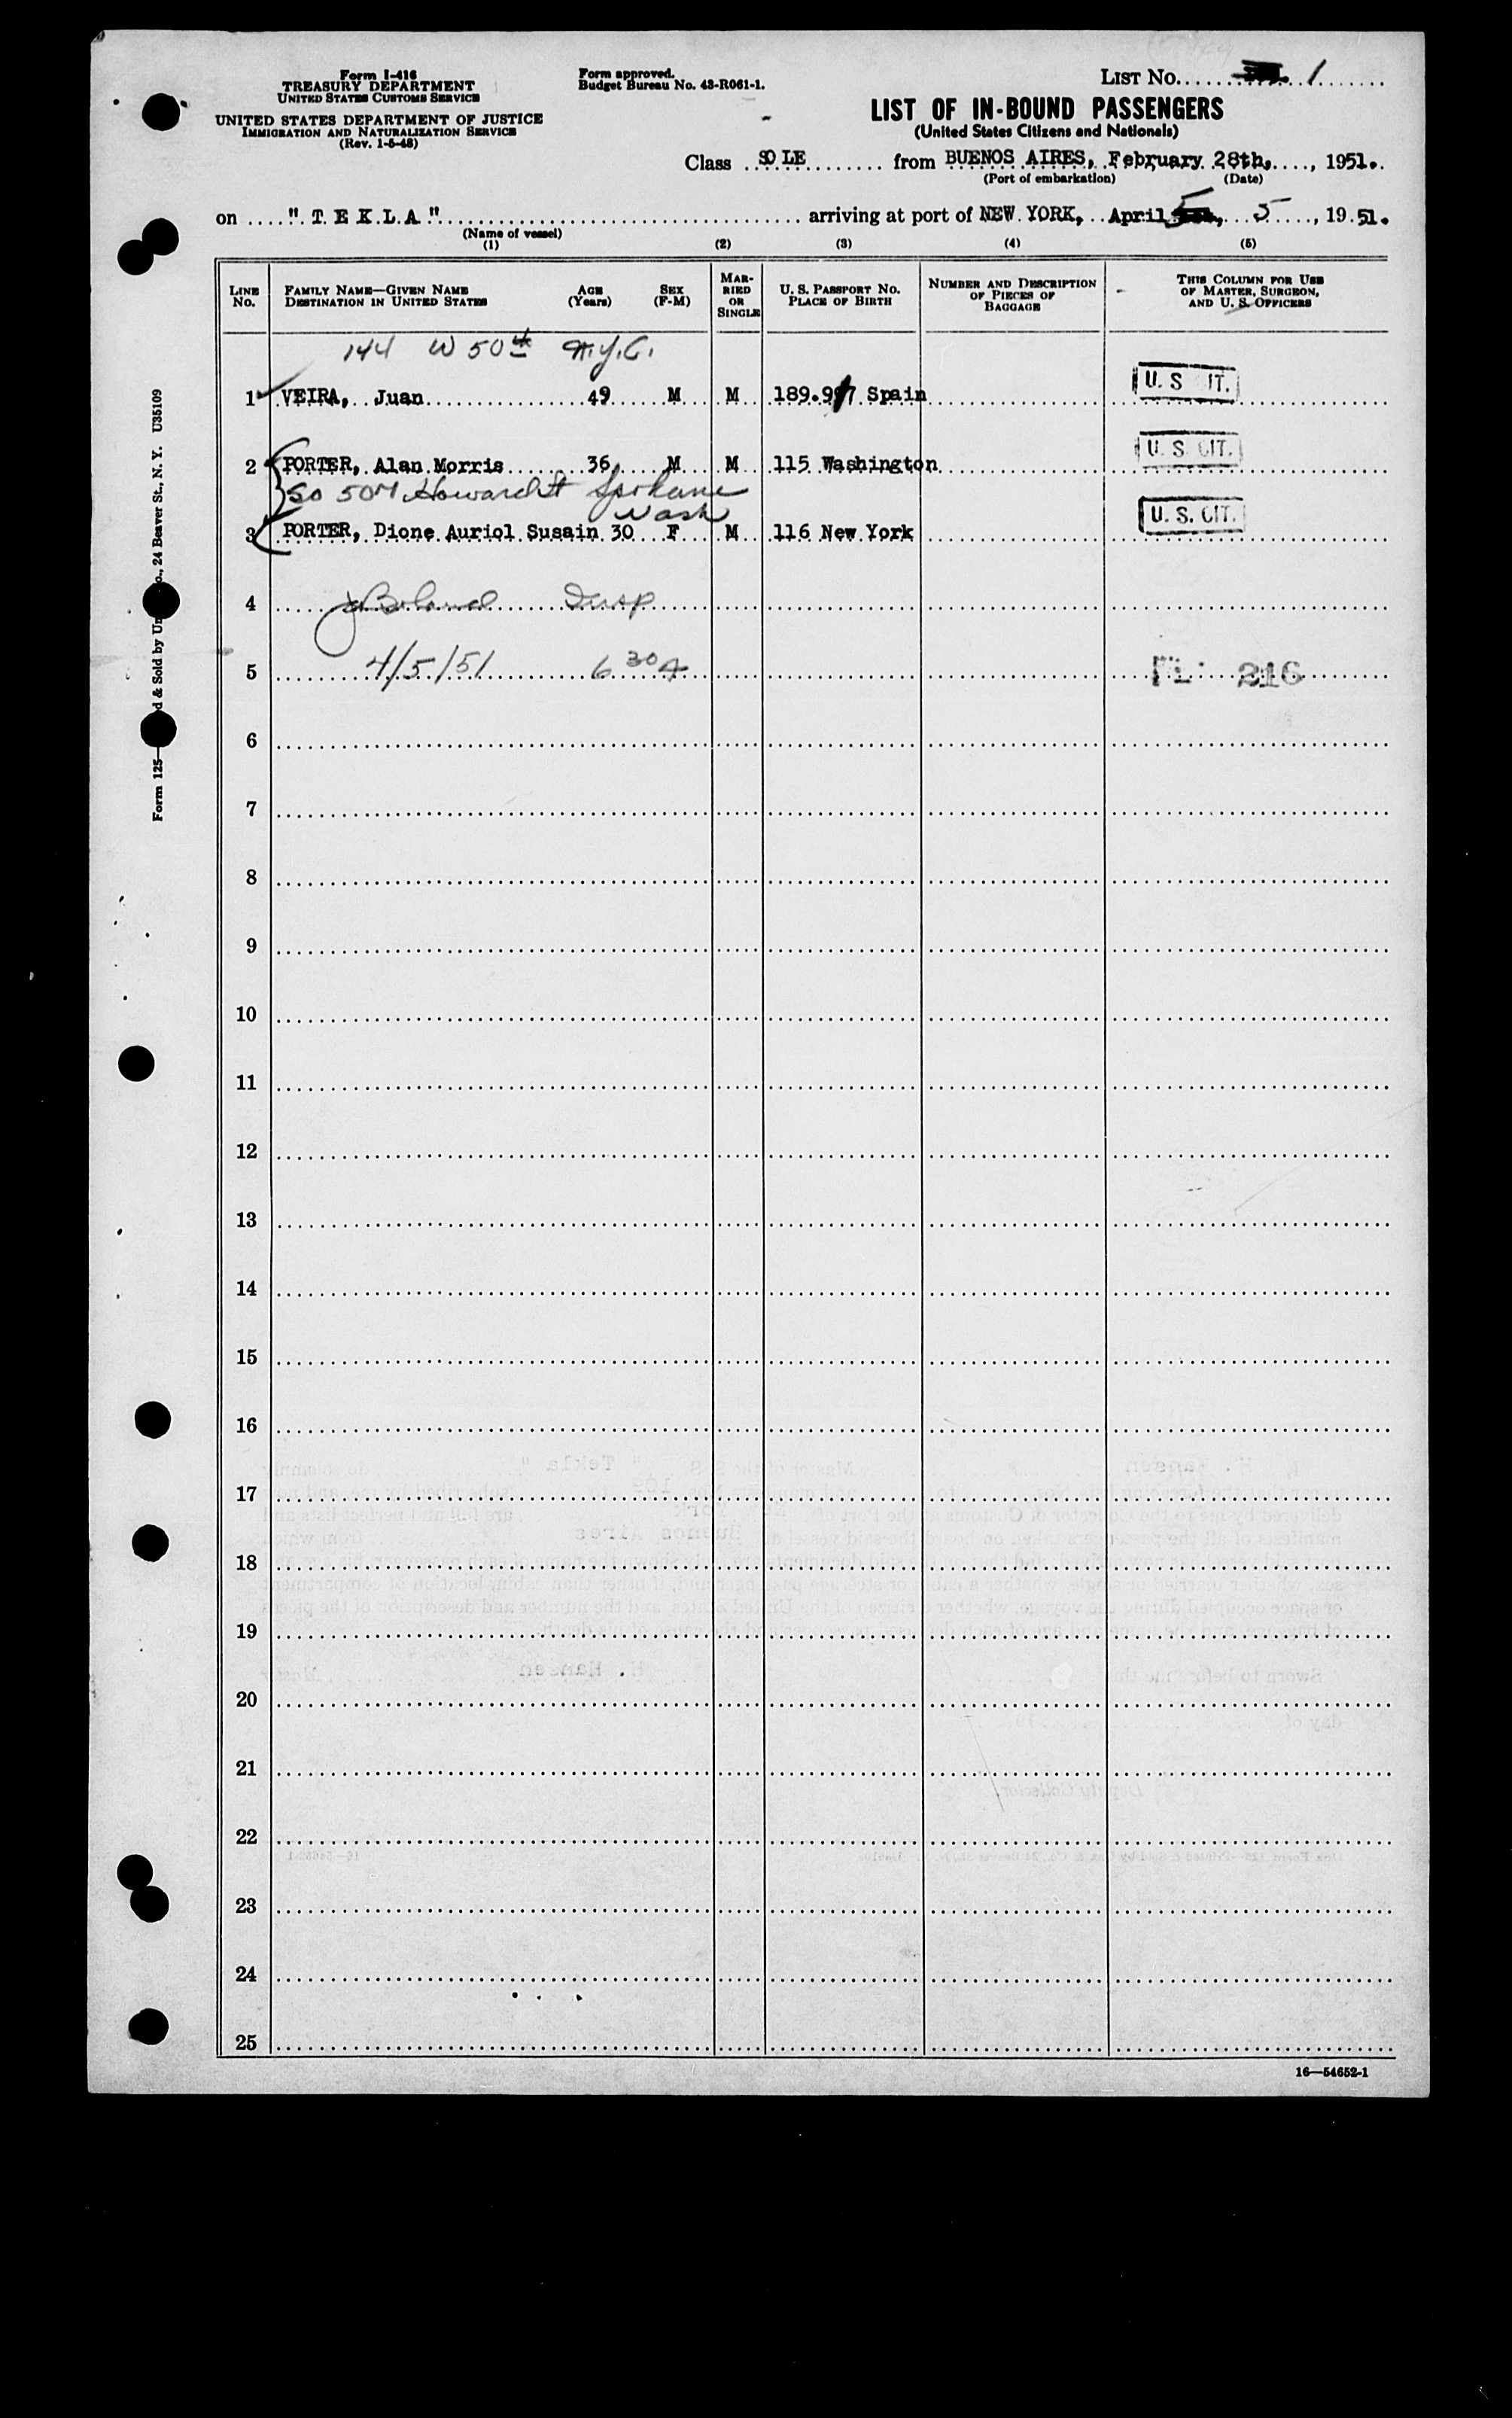 Form I-416
TREASURY DEPARTMENT
UNITED STATES CUSTOMS SERVICE
UNITED STATES DEPARTMENT OF JUSTICE
IMMIGRATION AND NATURALIZATION SERVICE
(Rev. 1-5-48)
Form approved.
Budget Bureau No. 43-R061-1.
LIST NO. 1
LIST OF IN-BOUND PASSENGERS
(United States Citizens and Nationals)
Class SOLE from BUENOS AIRES, February 28th, 1951.
(Port of embarkation) (Date)
on "TEKLA" arriving at port of NEW YORK, April 5, 1951.
(Name of vessel)
(1) (2) (3) (4) (5)
LINE NO. FAMILY NAME—GIVEN NAME DESTINATION IN UNITED STATES AGE (Years) SEX (F-M) MARRIED OR SINGLE U. S. PASSPORT NO. PLACE OF BIRTH NUMBER AND DESCRIPTION OF PIECES OF BAGGAGE THIS COLUMN FOR USE OF MASTER, SURGEON, AND U. S. OFFICERS
144 W 50th N.Y.C.
1 VEIRA, Juan 49 M M 189.997 Spain U. S. CIT.
2 PORTER, Alan Morris 36 M M 115 Washington U. S. CIT.
So 504 Howard St Spokane
Wash
3 PORTER, Dione Auriol Susain 30 F M 116 New York U. S. CIT.
4 J Boland Insp
5 4/5/51 6 30 A FL 216
6
7
8
9
10
11
12
13
14
15
16
17
18
19
20
21
22
23
24
25
16—54652-1
Form 125 & Sold by Un Co., 24 Beaver St., N. Y. U35109